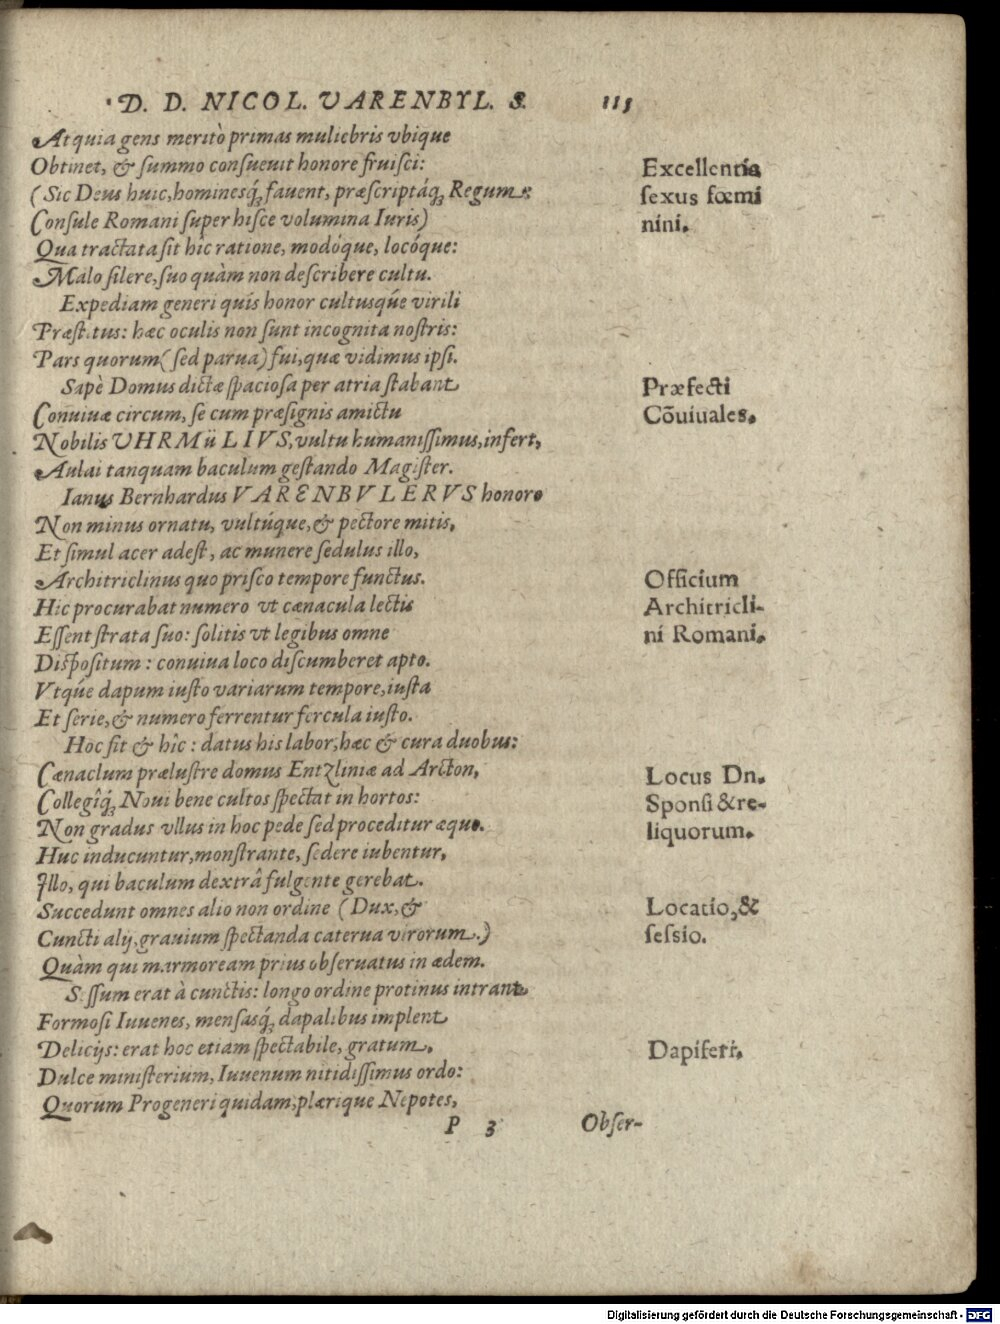 D. D. NICOL. VARENBYL. S. 115
Atquia gens meritò primas muliebris vbique
Obtinet, & summo consueuit honore fruisci:
(Sic Deus huic, hominesq́; fauent, præscriptáq; Regum:
Consule Romani super hisce volumina Iuris)
Qua tractata sit hîc ratione, modóque, locóque:
Malo silere, suo quàm non describere cultu.
Expediam generi quis honor cultusq́ue virili
Præstitus: hæc oculis non sunt incognita nostris:
Pars quorum (sed parua) fui, quæ vidimus ipsi.
Sæpè Domus dictæ spaciosa per atria stabant
Conuiuæ circum, se cum præsignis amictu
Nobilis VHRMüLIVS, vultu humanissimus, infert,
Aulai tanquam baculum gestando Magister.
Ianus Bernhardus VARENBVLERVS honore
Non minus ornatu, vultúque, & pectore mitis,
Et simul acer adest, ac munere sedulus illo,
Architriclinus quo prisco tempore functus.
Hic procurabat numero vt cænacula lectis
Essent strata suo: solitis vt legibus omne
Dispositum: conuiua loco discumberet apto.
Vtq́ue dapum iusto variarum tempore, iusta
Et serie, & numero ferrentur fercula iusto.
Hoc fit & hîc: datus his labor, hæc & cura duobus:
Cænaclum prælustre domus Entzliniæ ad Arcton,
Collegîq́; Noui bene cultos spectat in hortos:
Non gradus vllus in hoc pede sed proceditur æquo.
Huc inducuntur, monstrante, sedere iubentur,
Illo, qui baculum dextrâ fulgente gerebat.
Succedunt omnes alio non ordine (Dux, &
Cuncti alij, grauium spectanda caterua virorum.)
Quàm qui marmoream prius obseruatus in ædem.
Sessum erat à cunctis: longo ordine protinus intrant
Formosi Iuuenes, mensasq́; dapalibus implent
Delicijs: erat hoc etiam spectabile, gratum,
Dulce ministerium, Iuuenum nitidissimus ordo:
Quorum Progeneri quidam, plærique Nepotes,
P 3 Obser-
Excellentia
sexus fœmi
nini.
Præfecti
Cõuiuales.
Officium
Architricli-
ni Romani.
Locus Dn.
Sponsi & re-
liquorum.
Locatio, &
sessio.
Dapiferi.
Digitalisierung gefördert durch die Deutsche Forschungsgemeinschaft - DFG